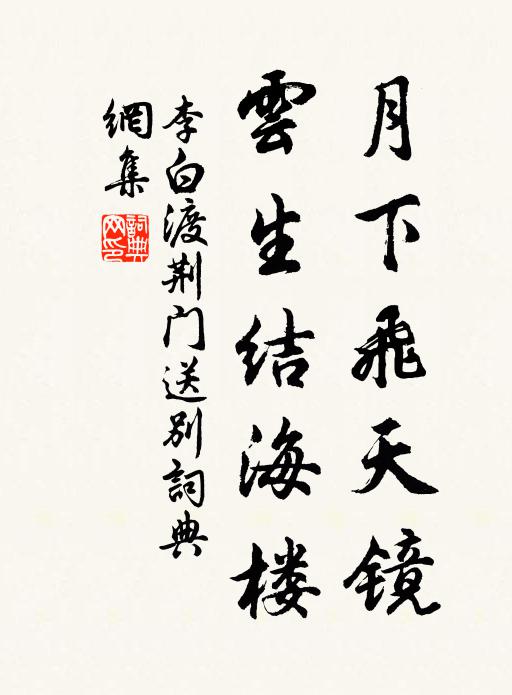 月下飛天镜
雲生结海楼
李白渡荆门送别詞典
網集
詞典
网印